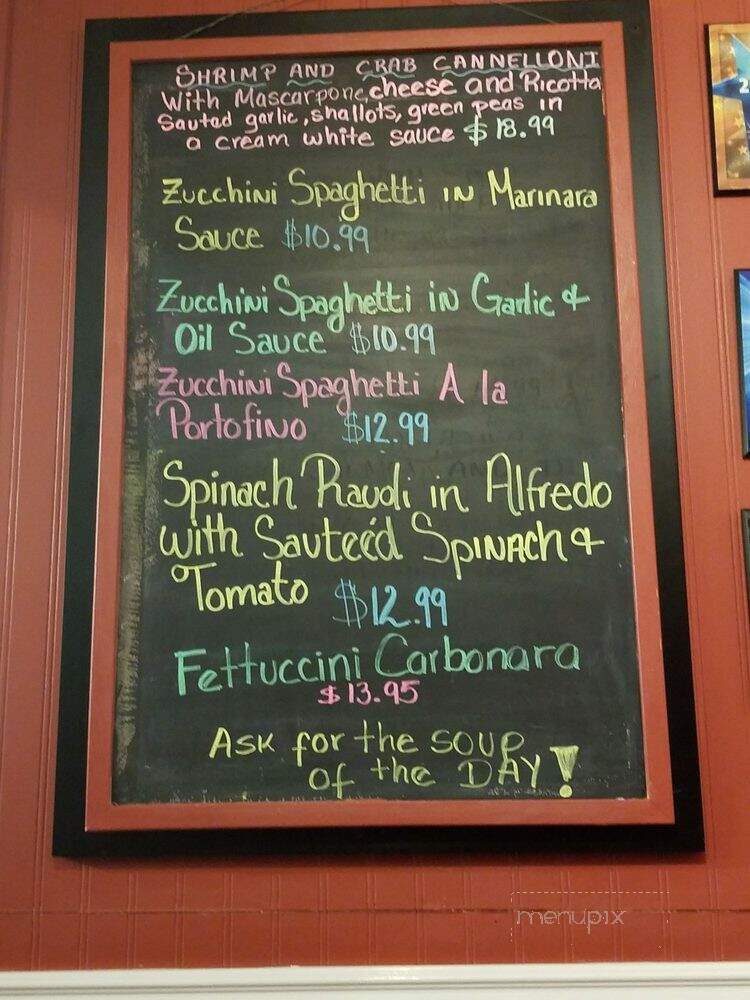 SHRIMP AND CRAB CANNELLONI
With Mascarpone, cheese and Ricotta
Sautad garlic, shallots, green peas in
a cream white sauce $18.99
Zucchini Spaghetti in Marinara
Sauce $10.99
Zucchini Spaghetti in Garlic &
Oil Sauce $10.99
Zucchini Spaghetti A la
Portofino $12.99
Spinach Raudi in Alfredo
with Sauteéd Spinach &
Tomato $12.99
Fettuccini Carbonara
$13.95
Ask for the SOUP
of the DAY!
menupix